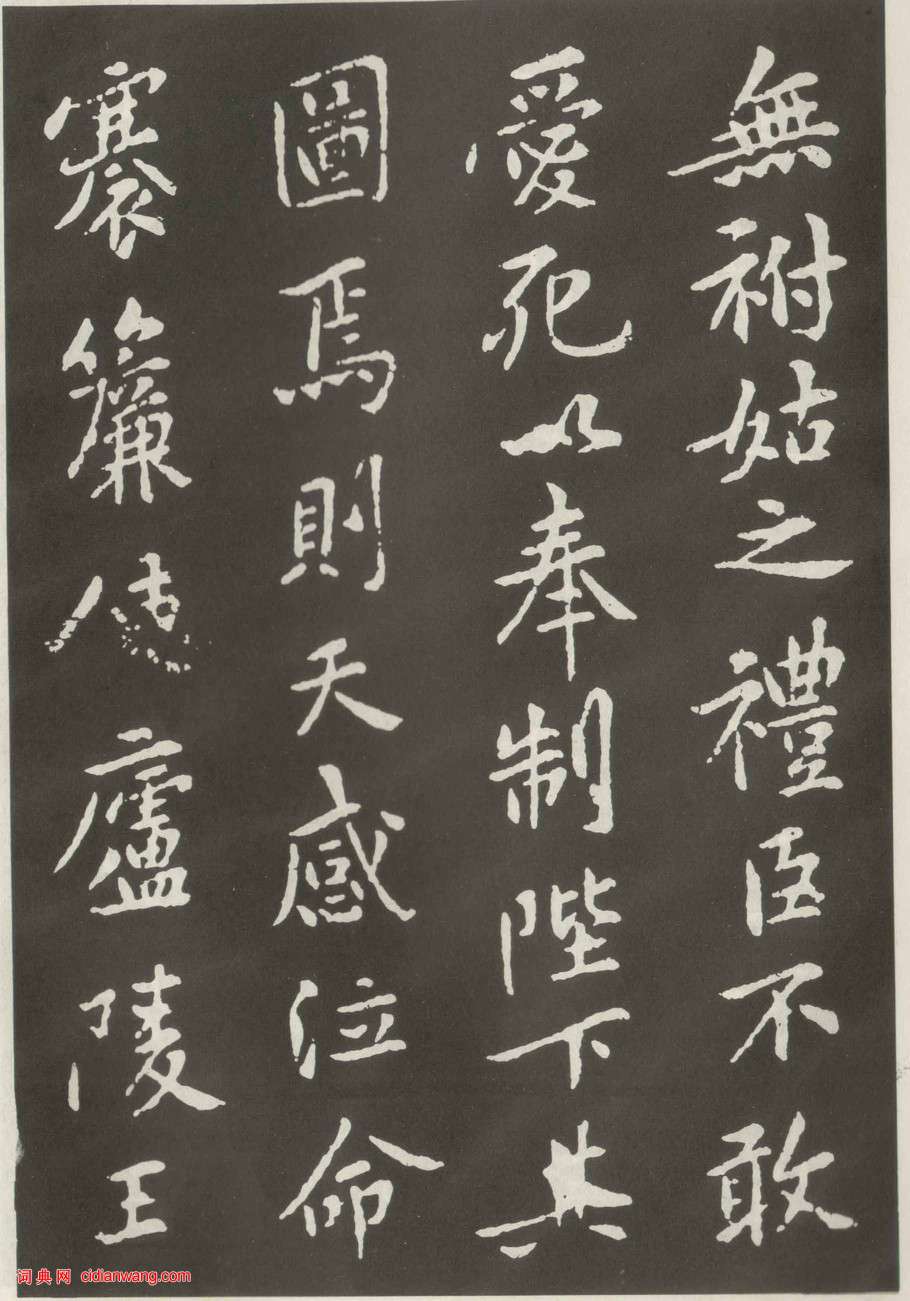 無祔姑之禮臣不敢
愛死以奉制陛下共
圖焉則天感泣命
褰簾使廬陵王
词典网 cidianwang.com